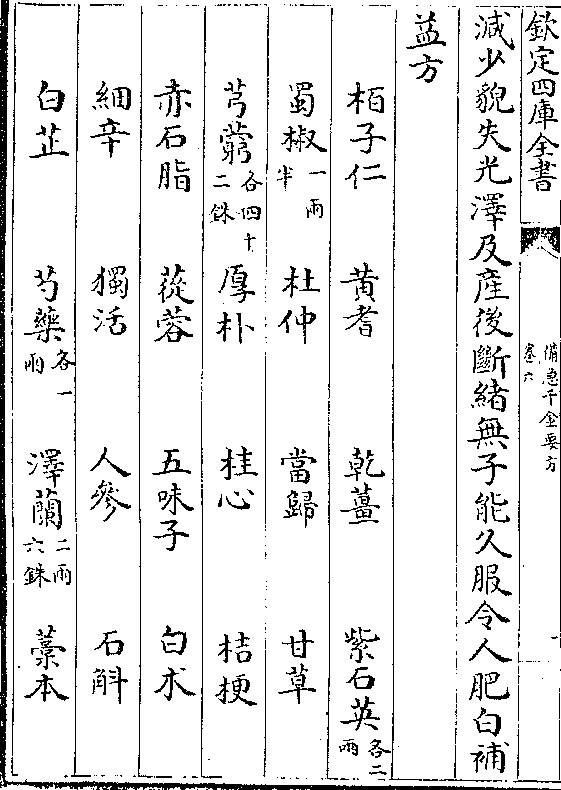 欽定四庫全書
備急千金要方
卷六
減少貌失光澤及産後斷緒無子能久服令人肥白補
益方
栢子仁 黄耆 乾薑 紫石英各二兩
蜀椒一兩半 杜仲 當歸 甘草
芎藭各四十二銖 厚朴 桂心 桔梗
赤石脂 蓯蓉 五味子 白朮
細辛 獨活 人參 石斛
白芷 芍藥各一兩 澤蘭二兩六銖 藁本